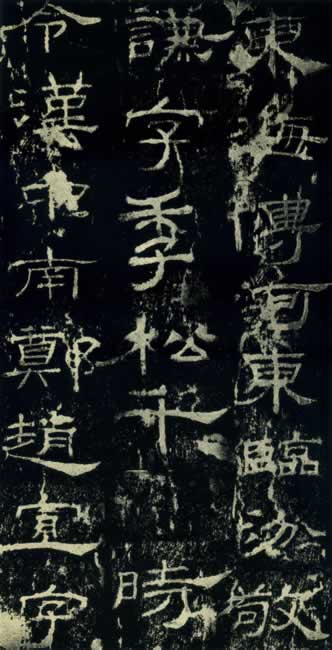 東海傅河東臨汾敬
謙字季松千時
令漢中南鄭趙宣字